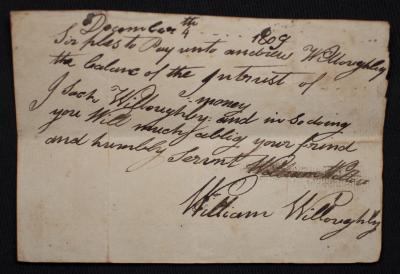 December th
4 1808
Sir ples to Pay unto andrew Willoughby
the balanc of the Intrest of
Isack Willoughby money
and in so doing
you Will much oblig your frind
and humbly Servnt
William Willoughby